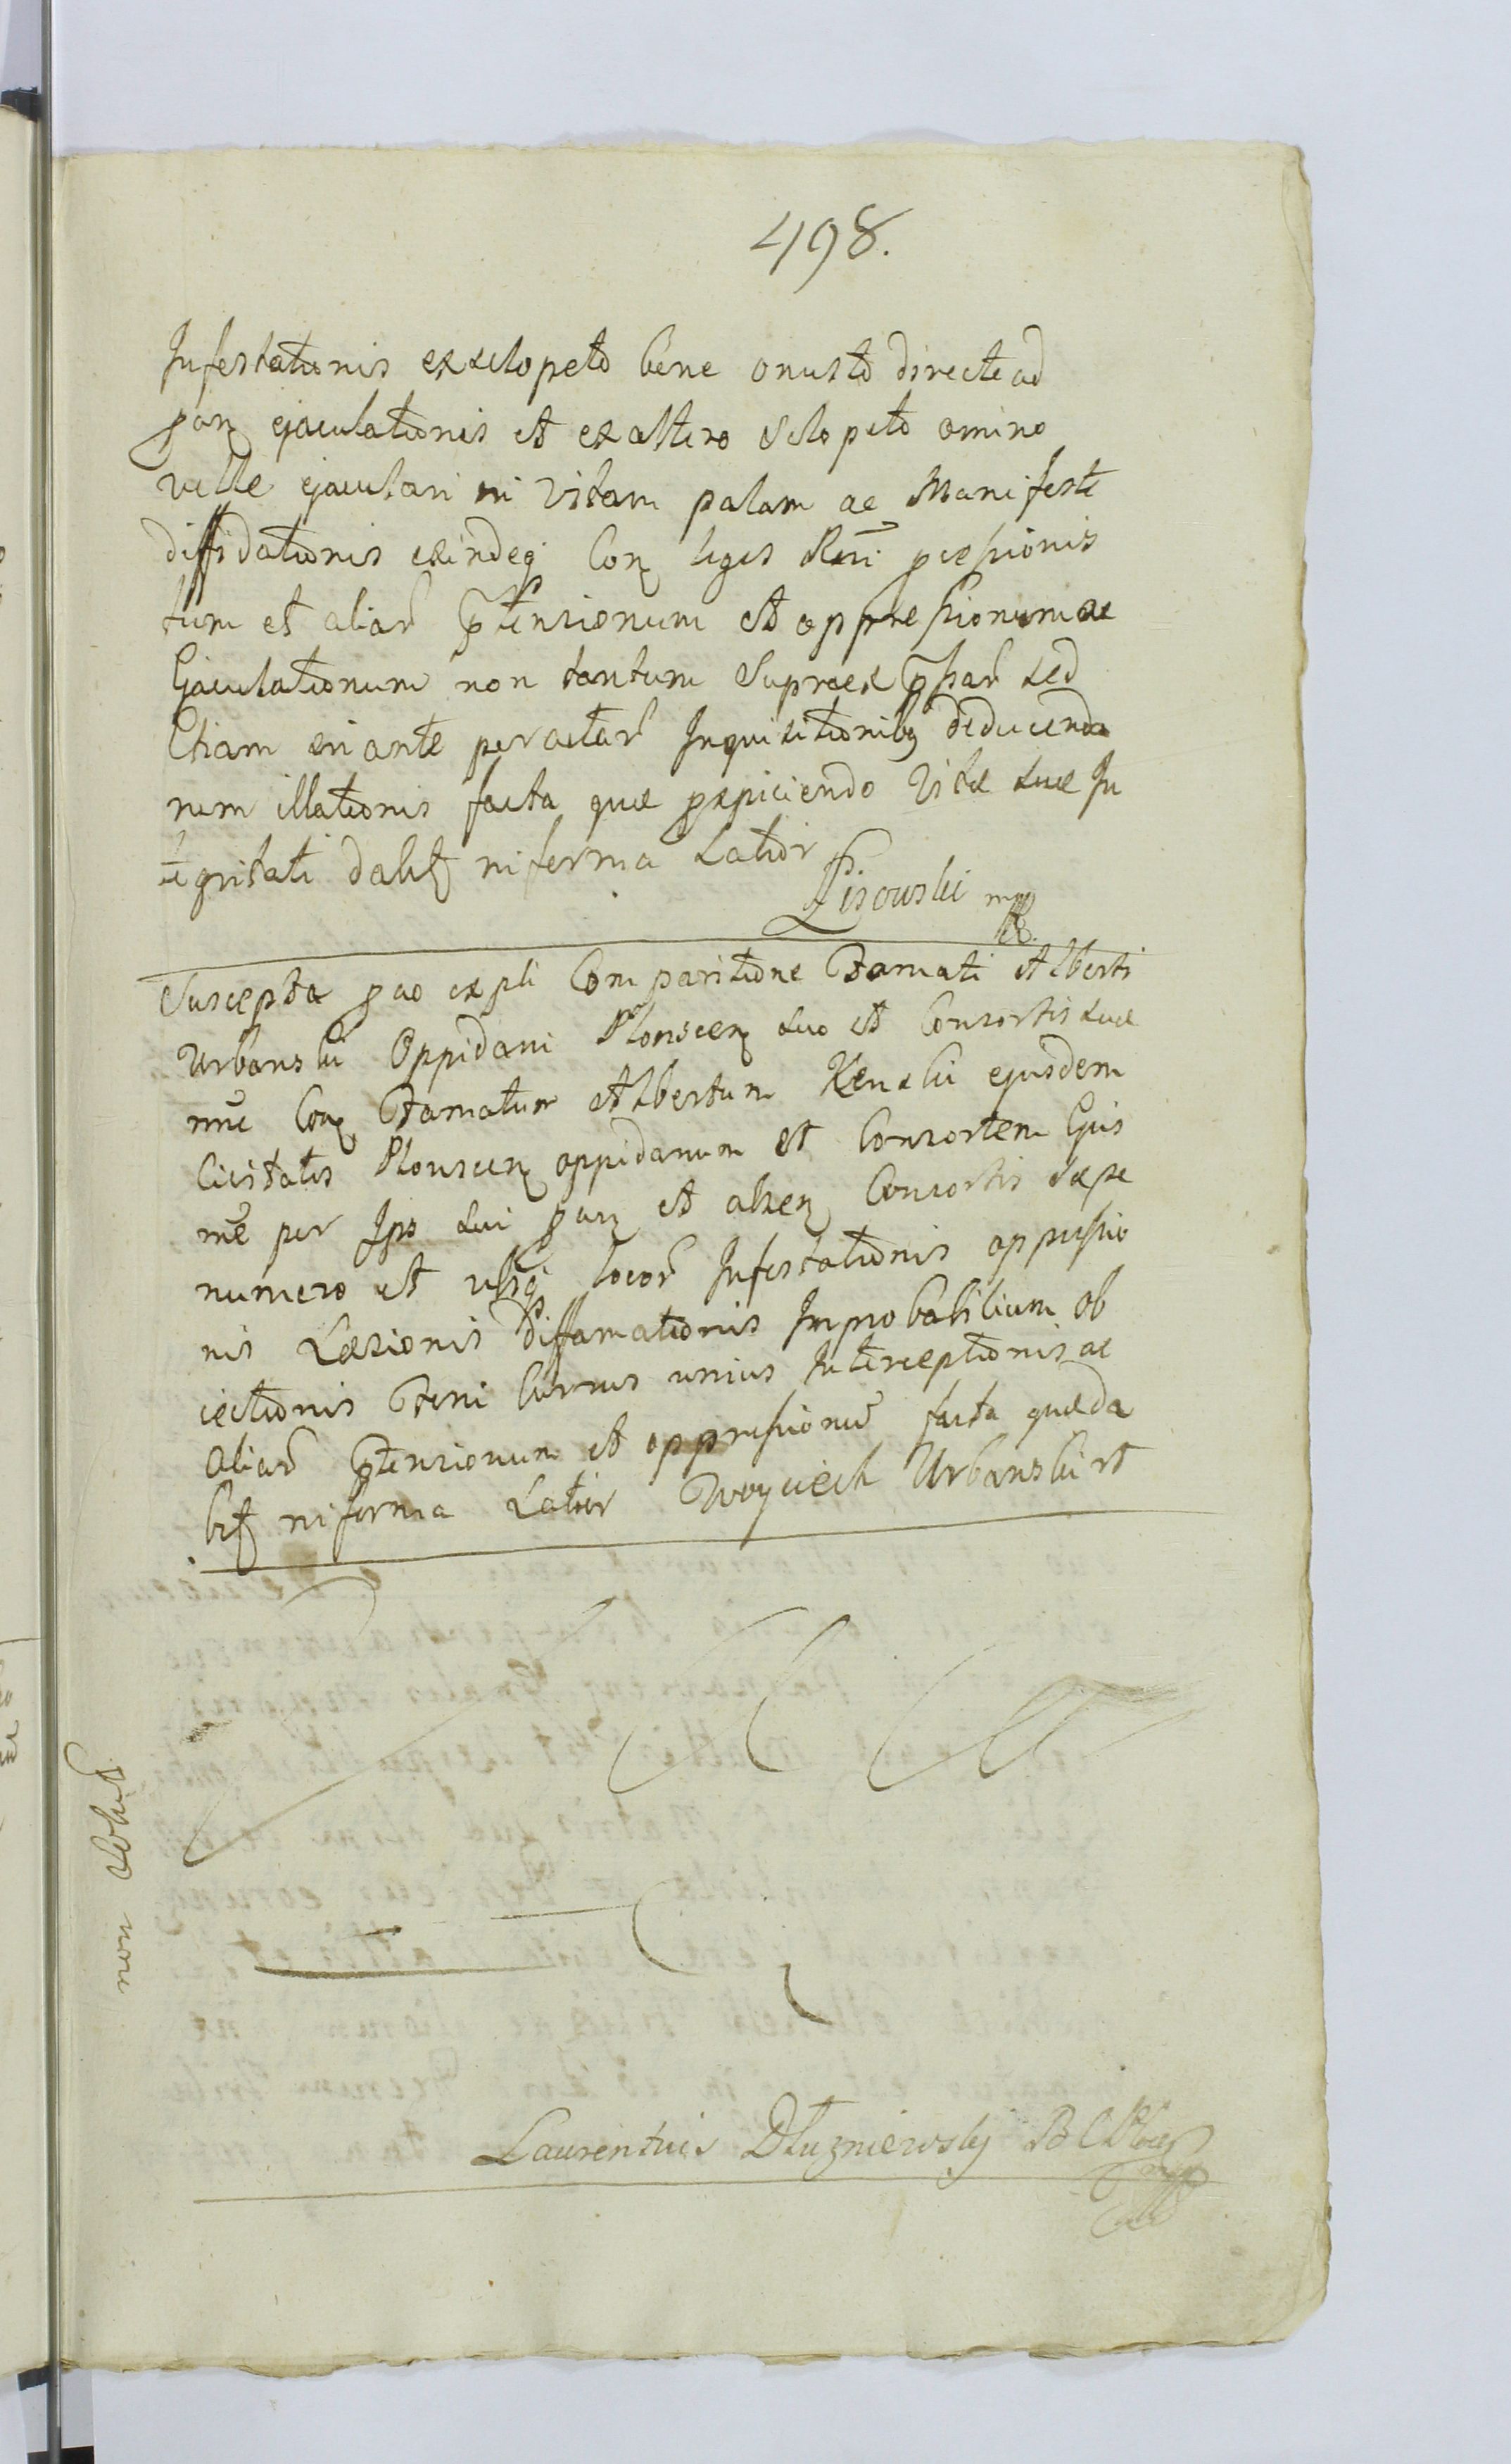 498.
Infestationis ex sclopeto bene onusto directe ad
pąm ejaculationis et ex altero sclopeto omino
velle ejaculari in vitam palam ac Manifeste
diffidationis exindeq Con leges Regni
tum et aliar ptensionum et oppressionum ac
Ejaculationum non tantum Supra sed
Etiam in ante peractar Inquisitionibq deducenda
rum illationis facta quæ pspiciendo vitæ suæ In
tegritati dabit in forma Latior
Lisowski mpp
Suscepta quo Comparitione Famati Alberti
Urbanski Oppidani Plonscen suo et Consortis suæ
nne Con Famatum Albertum Kenski ejusdem
Civitatis Plonscen oppidanum et Consortem Ejus
nne per Ips sui et Consortis sæpe
numero et locor Infestationis oppressio
nis Læsionis Diffamationis Improbabilium ob
iectionis Feni Currus unius Interceptionis ac
Aliar ptensionum et oppressionu facta quæ da
bit in forma Latior Woyciech Urbanski rt
non solvit
Laurentius Dłuzniewsky